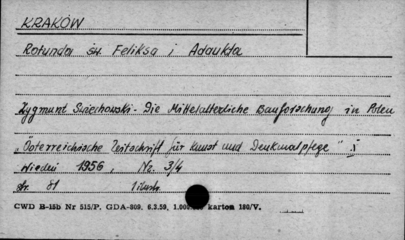 KRAKÓW
Rotunda św. Feliksa i Adaukta
Zygmunt Świechowski - Die Mittelalterliche Bauforschung in Polen
„Österreichische Zeitschrift für Kunst und Denkmalpflege"
Wiedeń 1956, Nr. 3/4
str. 81 1 ilustr.
CWD B-15b Nr 515/P. GDA-809. 6.2.59. 1.000. karton 180/V.